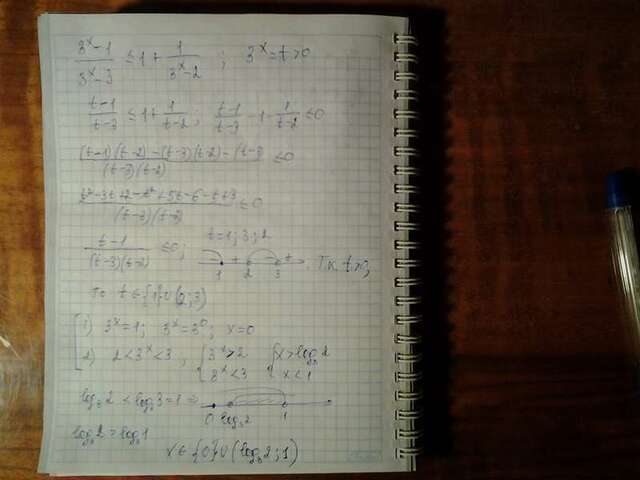 (3^x-1)/(3^x-3) ≤ 1 + 1/(3^x-2) ; 3^x=t>0
(t-1)/(t-3) ≤ 1 + 1/(t-2) ; (t-1)/(t-3) - 1 - 1/(t-2) ≤0
((t-1)(t-2)-(t-3)(t-2)-(t-3))/((t-3)(t-2)) ≤0
(t²-3t+2-t²+5t-6-t+3)/((t-3)(t-2)) ≤0
(t-1)/((t-3)(t-2)) ≤0; t=1; 3; 2
- + - + . Т.к t>0,
1 2 3
то t∈{1}∪(2;3)
1) 3^x=1; 3^x=3^0; x=0
2) 2<3^x<3, {3^x>2 {x>log₃2
3^x<3 x<1
log₃2 < log₃3=1 ⇒
0 log₃2 1
log₃2 > log₃1
x∈{0}∪(log₃2;1)